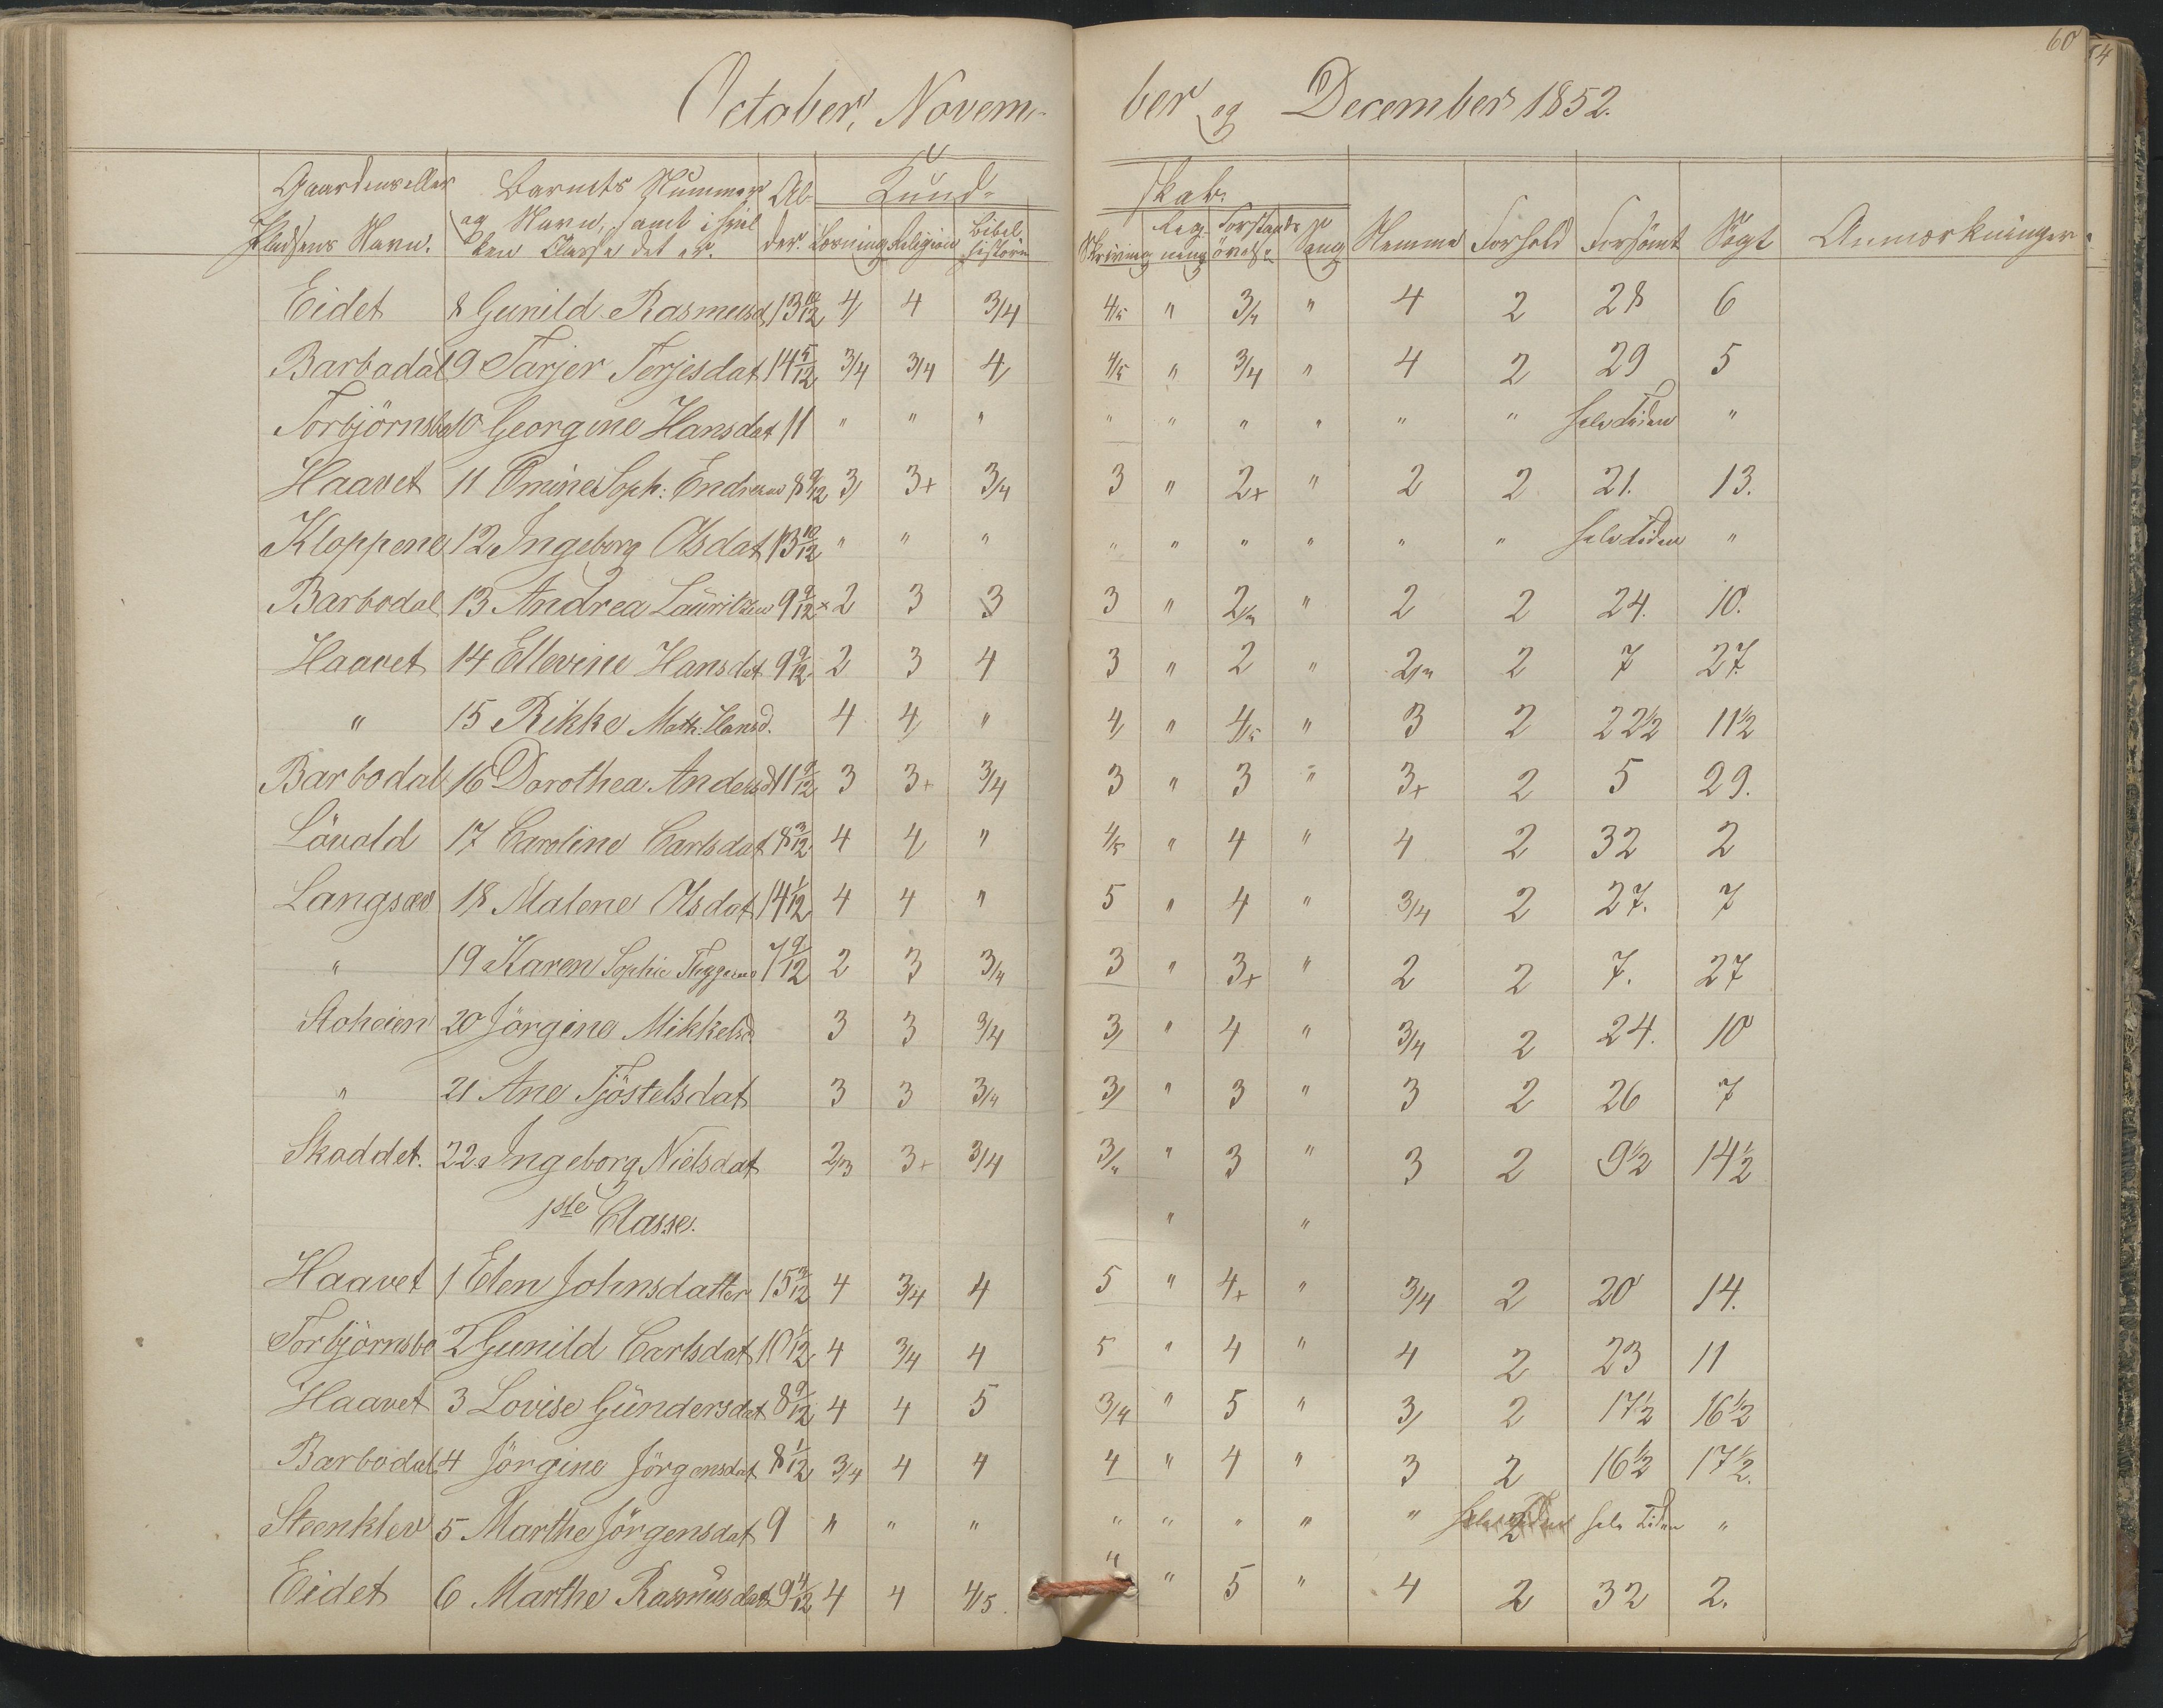 60
October, Novem- ber og December 1852.
Gaardens eller Barnets Nummer Al- Kund- skab.
Pladsens Navn. og Navn, samt i hvil ken Classe det er. der. Læsning Religion Bibel historie Skrivning Reg ning Forstands øvelse Sang Nemme Forhold Forsömt Sögt Anmærkninger.
Eidet 8 Gunild Rasmusd 13 10/12 4 4 3/4 4/5 " 3/4 " 4 2 28 6
Barbodal 9 Tarjer Terjesdat 14 5/12 3/4 3/4 4 4/5 " 3/4 " 4 2 29 5
Torbjörnsbo 10 Georgine Hansdat 11 " " " " " " " " " hele Tiden "
Haavet 11 Omine Soph: 8 9/12 3 3+ 3/4 3 " 2+ " 2 2 21. 13.
Kloppene 12 Ingeborg Olsdat 13 10/12 " " " " " " " " " hele Tiden "
Barbodal 13 Andrea Lauritzen 9 9/12 +2 3 3 3 " 2/3 " 2 2 24. 10.
Haavet 14 Ellevine Hansdat 9 9/12 2 3 4 3 " 2 " 2/3 2 7 27.
" 15 Rikke Math: Hansd. 4 4 " 4 " 4/5 " 3 2 22½ 11½
Barbodal 16 Dorothea Andersd 11 9/12 3 3+ 3/4 3 " 3 " 3+ 2 5 29.
Lövold 17 Caroline Carlsdat 8 3/12 4 4 " 4/5 " 4 " 4 2 32 2
Langsæv 18 Malene Olsdat 14 1/12 4 4 " 5 " 4 " 3/4 2 27. 7
" 19 Karen Sophie 7 9/12 2 3 3/4 3 " 3+ " 2 2 7. 27
Stoheien 20 Jörgine Mikkelsd. 3 3 3/4 3 " 4 " 3/4 2 24. 10
" 21 Ane Tjöstelsdat 3 3 3/4 3 " 3 " 3 2 26 7
Skoddet. 22 Ingeborg Nielsdat 2/3 3+ 3/4 3/4 " 3 " 3 2 9½ 14½
1ste Classe. " "
Haavet 1 Elen Johnsdatter 15 3/12 4 3/4 4 5 " 4+ " 3/4 2 20 14.
Torbjörnsbo 2 Gunild Carlsdat 10 1/12 4 3/4 4 5 " 4 " 4 2 23 11
Haavet 3 Lovise Gündersdat 8 9/12 4 4 5 3/4 " 5 " 3 2 17½ 16½
Barbodal 4 Jörgine Jörgensdat 8 1/12 3/4 4 4 4 " 4 " 3 2 16½ 17½.
Steenklev 5 Marthe Jörgensdat 9 " " " " " " " " 2 hele Tiden "
Eidet 6 Marthe Rasmusdat 9 4/12 4 4 4/5. " " 5 " 4 2 32 2.